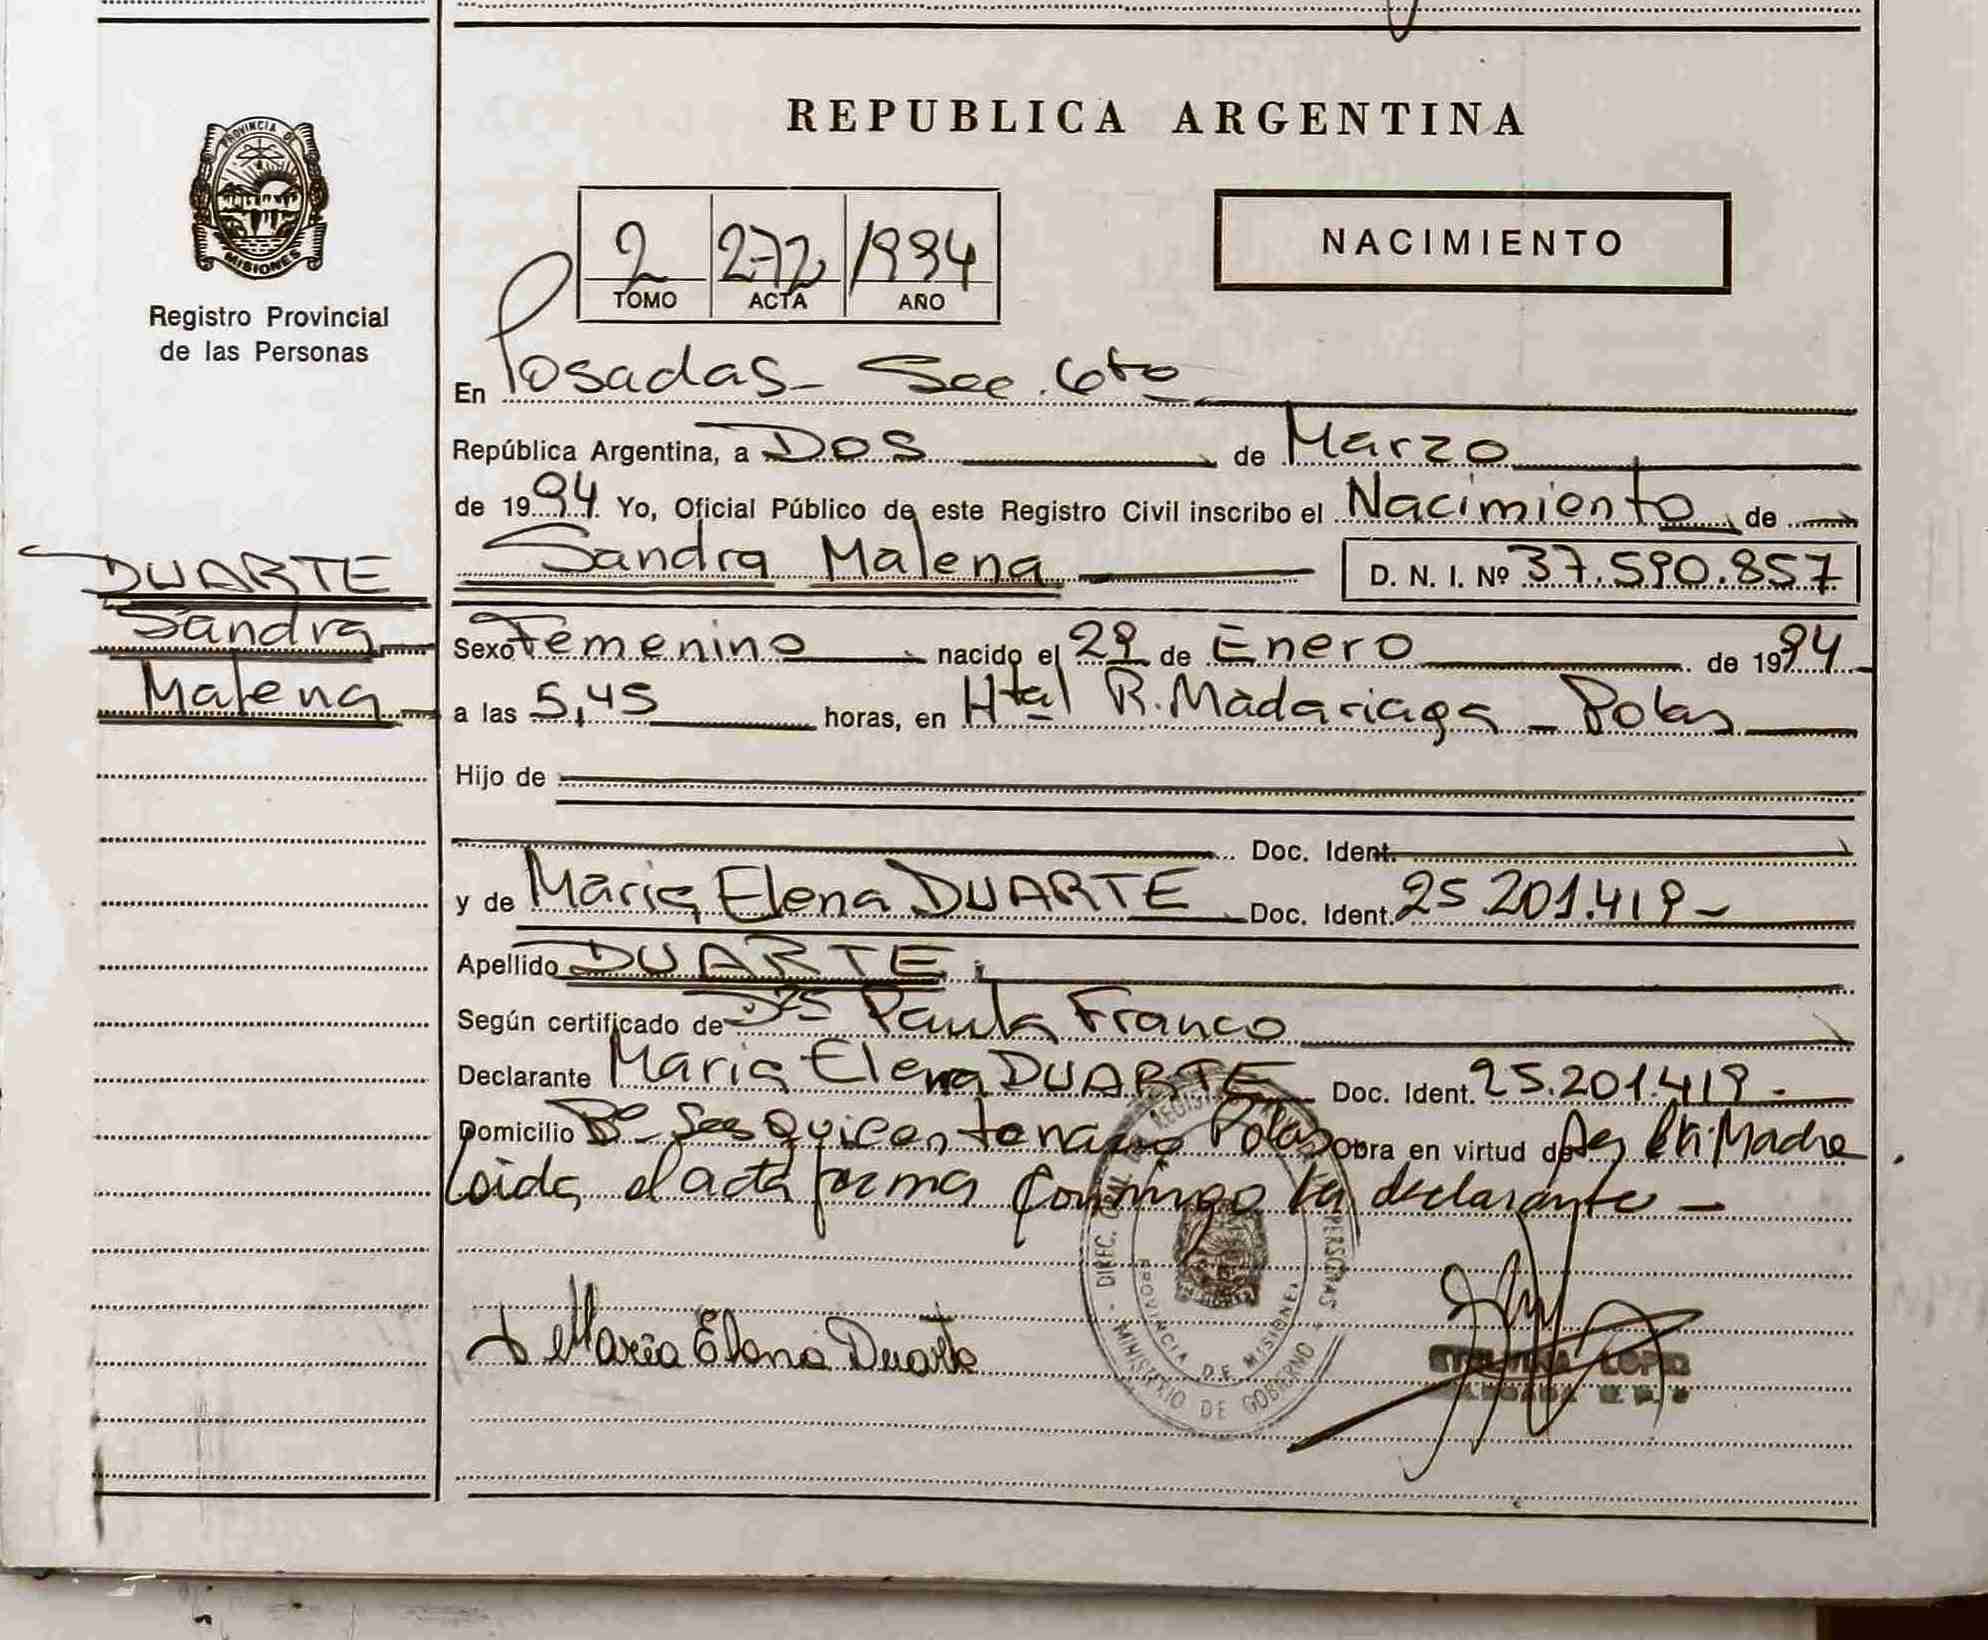 REPUBLICA ARGENTINA
PROVINCIA DE
MISIONES
Registro Provincial
de las Personas
2 272 1994
TOMO ACTA AÑO
NACIMIENTO
En Posadas - Sec. 6to
República Argentina, a Dos de Marzo
de 1994 Yo, Oficial Público de este Registro Civil inscribo el Nacimiento de
Sandra Malena D. N. I. Nº 37.590.857
DUARTE
Sandra
Malena
Sexo Femenino nacido el 29 de Enero de 1994
a las 5,45 horas, en Htal R. Madariaga - Pdas
Hijo de
Doc. Ident.
y de Maria Elena DUARTE Doc. Ident. 25.201.419 -
Apellido DUARTE
Según certificado de Paula Franco
Declarante Maria Elena DUARTE Doc. Ident. 25.201.419 -
Domicilio Bº Sesquicentenario Pdas Obra en virtud de Madre
Leida el acta firma conmigo la declarante -
Maria Elena Duarte
DIREC. GRAL. PERSONAS
PROVINCIA DE MISIONES
MINISTERIO DE GOBIERNO
LOPEZ